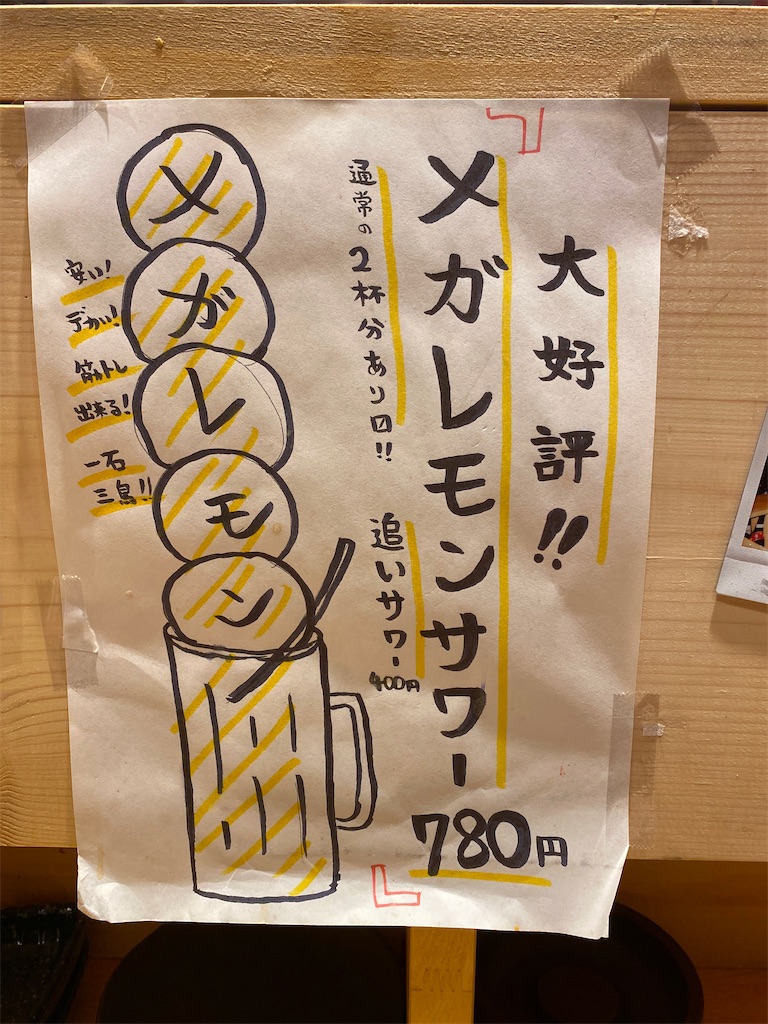 大好評!!
メガレモンサワー
780円
通常の2杯分あり口!!
追いサワー
400円
メガレモン
安い!
デカい!
筋トレ
出来る!
一石
三鳥!!